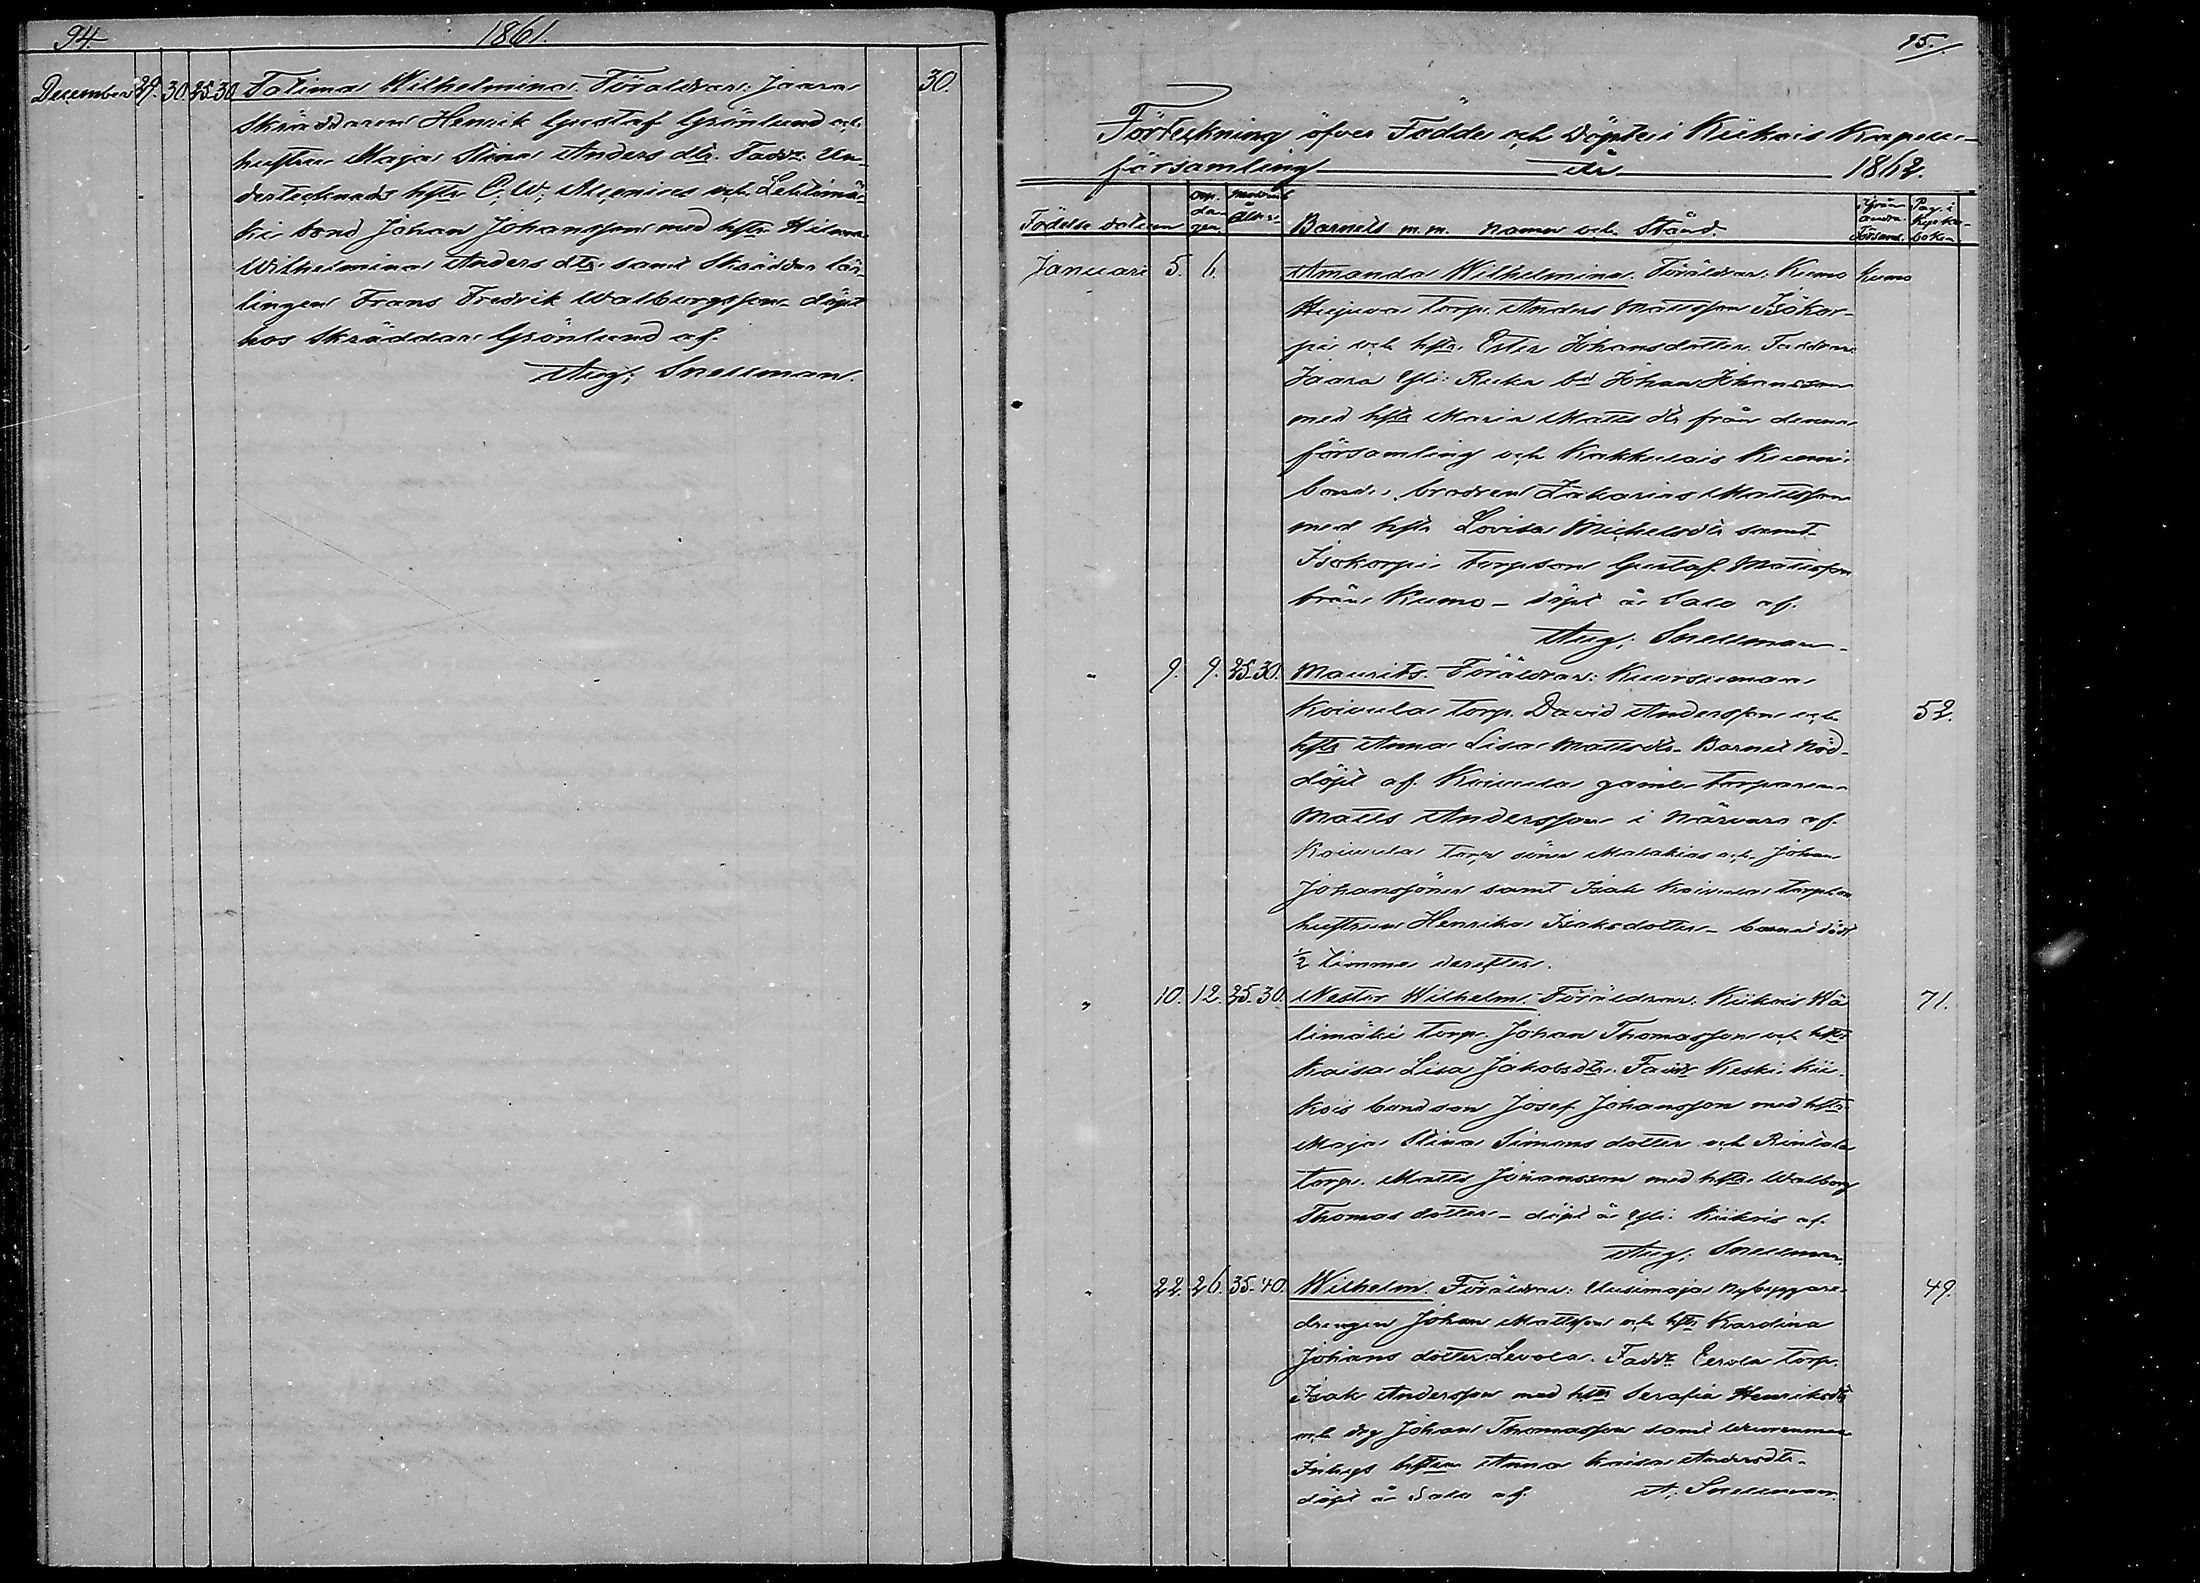 94. 1861.
December 29. 30. 25-30 Fatima Wilhelmina. Föräldrar: Jaara 30.
Skräddaren Henrik Gustaf Grönlund och
hustru Maja Stina Anders dtr. Faddr: Un-
dertecknads hstr C. W. och Lehtimä-
ki bond Johan Johansson med hstr Hilma
Wilhelmina Anders dtr. samt Skräddar lär-
lingen Frans Fredrik Walborgsson döpt
hos Skräddar Grönlund af.
Aug: Snellman.
95.
Förteckning öfver Födde och Döpte i Kiikois Kapell-
församling år 1862.
Födelse datum Dop-dagen Modrens ålder Barnets m.m. namn och Stånd. Från andra Församl. Pag. i kyrko-boken
Januari 5. 6. Amanda Wilhelmina. Föräldrar: Kumo Kumo
torp. Anders Mattsson Isokor-
pi och hstr. Ester Johansdotter. Faddrar
Jaara Yli: Ruka bd Johan Johansson
med hstr Maria Matts dtr från denna
församling och Kakkulais
bonde brodren Zakarias Mattsson
med hstr Lovisa Michelsdtr samt
Isokorpi torpson Gustaf Mattsson
från Kumo - döpt å Salo af.
Aug: Snellman.
" 9. 9. 25-30. Maurits. Föräldrar: Kuorsumaa
Koivula torp. David Andersson och 52.
hstr Anna Lisa Mattsdtr. Barnet Nöd-
döpt af Koivula gamle torparen
Matts Andersson i närvaro af
Koivula torp söner Malakias och Johan
Johanssöner samt Isak Koivula torpson
hustrun Henrika Isaksdotter - barnet död
1/2 timme derefter.
" 10. 12. 25-30. Nestor Wilhelm. Föräldrar: Kiikois Wä- 71.
limäki torp. Johan Thomasson och hstr
Kaisa Lisa Jakobsdtr. Faddr Keski Kii-
kois bondson Josef Johansson med hstr
Maja Stina Simons dotter och Rintala
torp. Matts Johansson med hstr. Walborg
Thomas dotter - döpt å Yli: Kiikois af.
Aug: Snellman.
" 22. 26. 35-40. Wilhelm. Föräldrar: Uusimaja Nybyggare- 49.
drengen Johan Mattsson och hstr Karolina
Johans dotter Levola. Faddr Eerola torp.
Isak Andersson med hstr Serafia Henriksdtr
och drg Johan Thomasson samt
Inhys hstrun Anna Kaisa Andersdtr.
döpt å Salo af. A. Snellman.